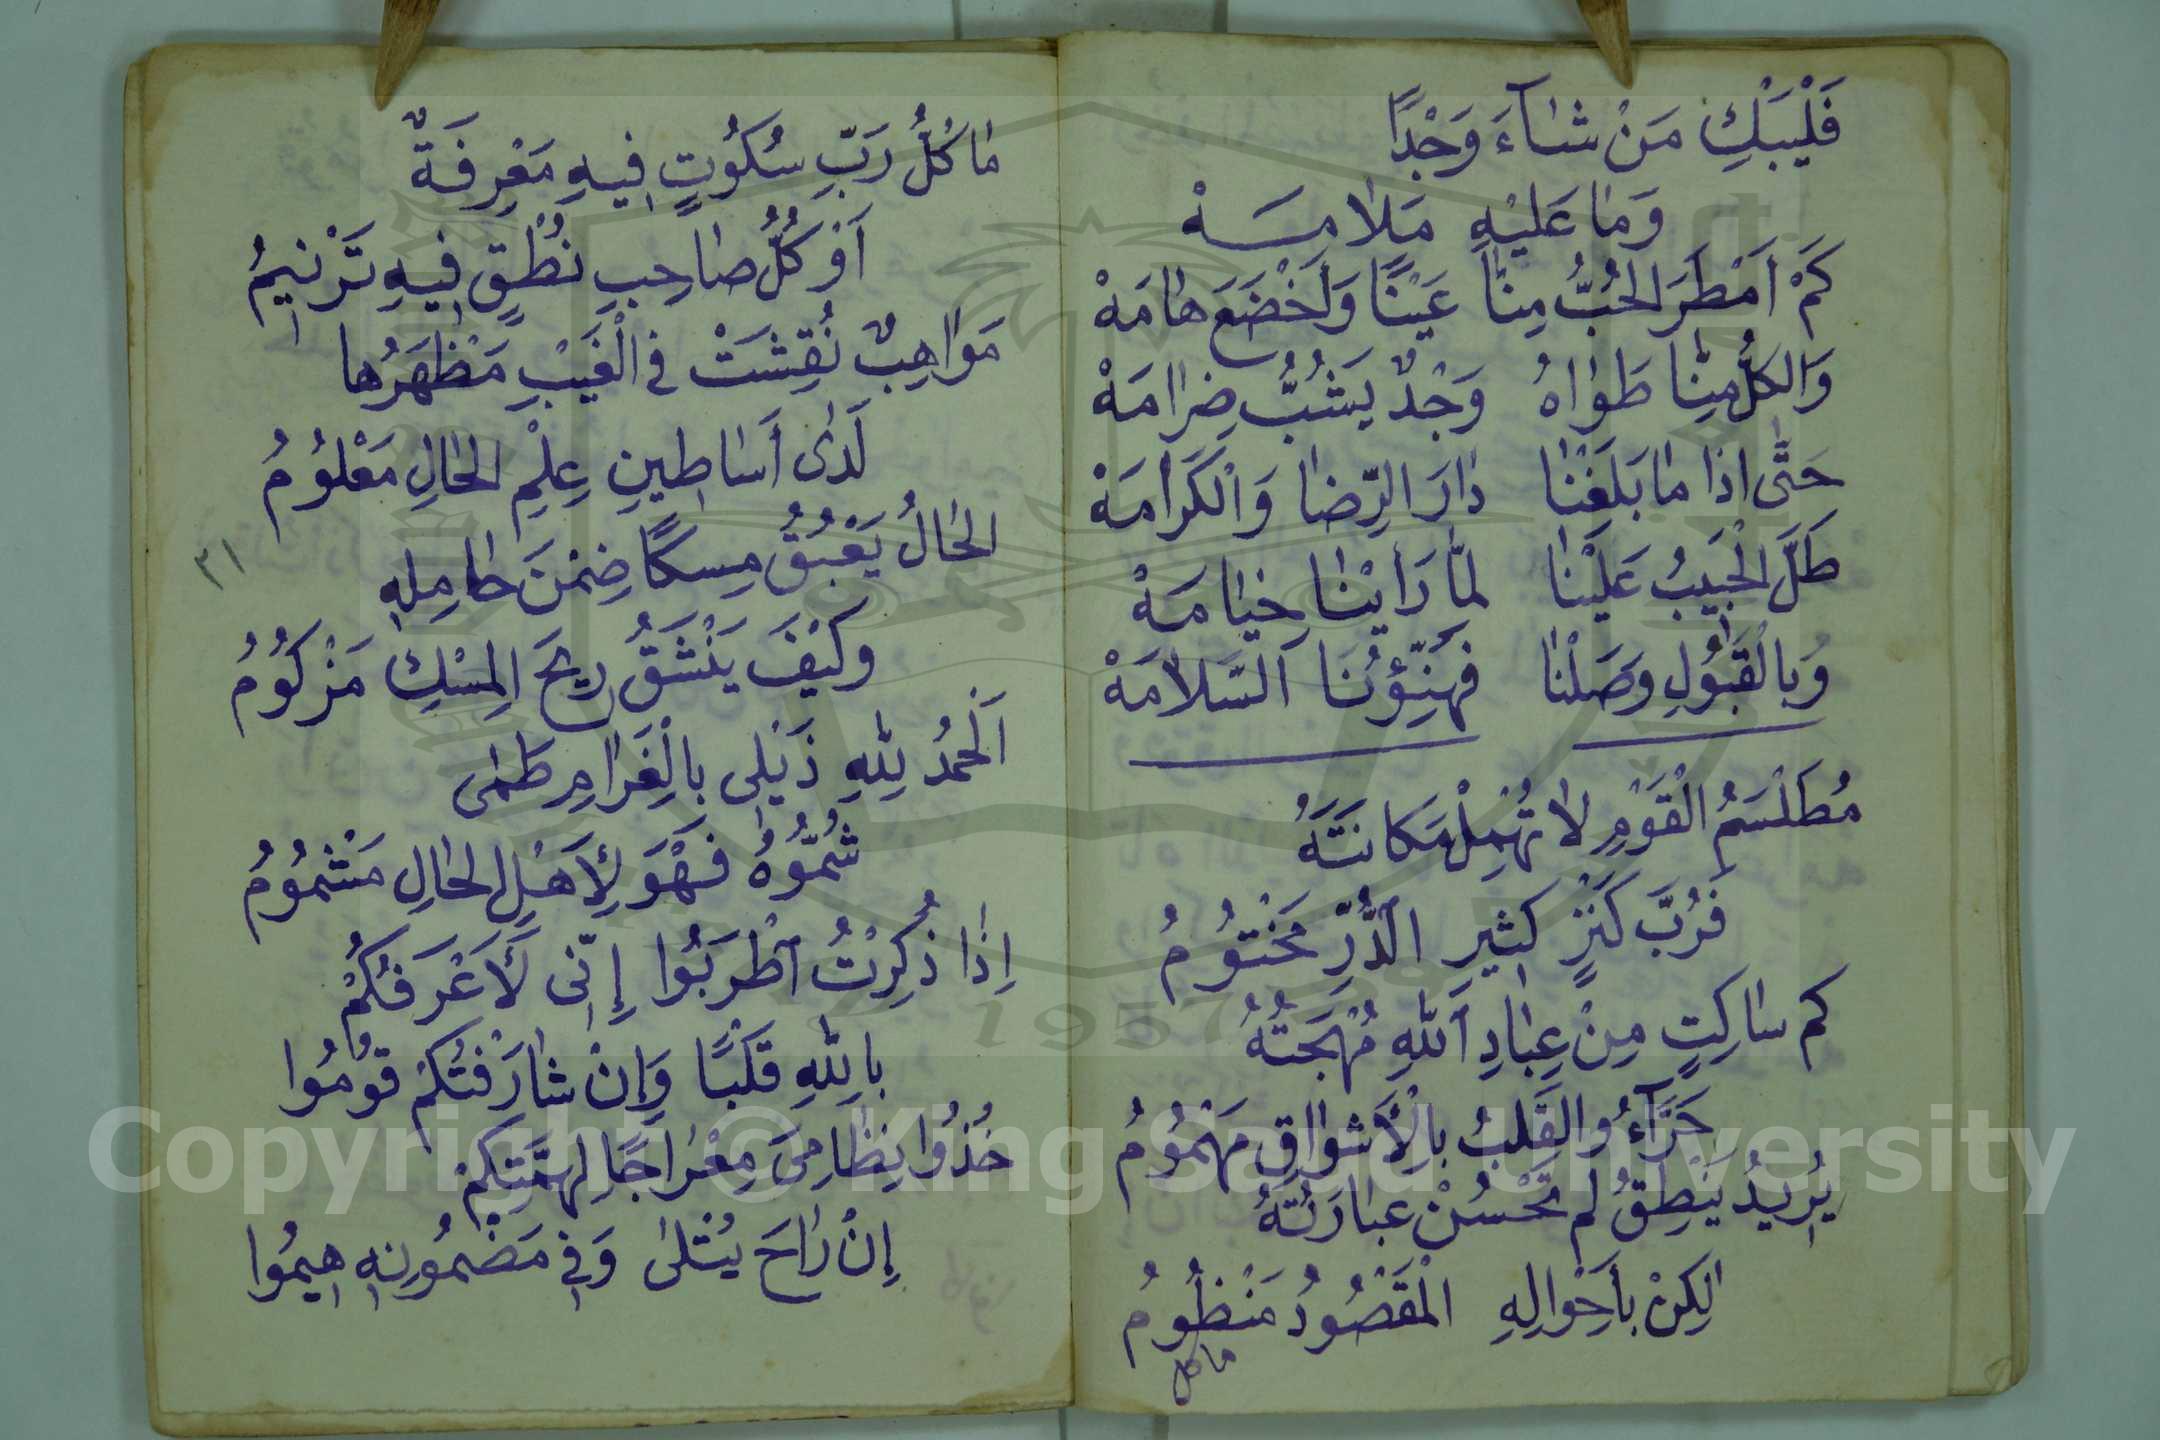 فَلْيَبْكِ مَنْ شَآءَ وَجْدًا
وَمَا عَلَيْهِ مَلَامَــــهْ
كَمْ اَمْطَرَ الحُبُّ مِنَّا عَيْنًا وَاَخْضَعَ هَامَهْ
وَالكُلُّ مِنَّا طَوَاهُ وَجْدٌ يَشُبُّ ضِرَامَهْ
حَتَّى اِذَا مَا بَلَغْنَا دَارَ الرِّضَا وَالْكَرَامَهْ
طَلَّ الْحَبِيبُ عَلَيْنَا لمَّا رَاَيْنَا خِيَامَهْ
وَبِالْقَبُولِ وَصَلْنَا فَهَنِّؤُنَا اَلسَّلَامَهْ
مُطَلْسَمُ الْقَوْمِ لَا تُهْمِلْ مَكَانَتَهُ
فَرُبَّ كَنْزٍ كَثِيرِ الدُّرِّ مَخْتُومُ
كم سَاكِتٍ مِنْ عِبَادِ اللّٰهِ مُهْجَتُهُ
حَرَّآءُ وَالقَلبُ بِالْأَشوَاقِ مَهْمُومُ
يُرِيدُ يَنْطِقُ لم تَحْسُنْ عبَارَتُهُ
لكِنْ بِأَحْوَالِهِ الْمَقْصُودُ مَنْظُومُ
ما كل
مَا كُلُّ رَبِّ سُكُوتٍ فِيهِ مَعْرِفَةٌ
اَوْ كُلُّ صَاحِبِ نُطْقٍ فِيهِ تَرْنِيمُ
مَوَاهِبٌ نُقِشَتْ في الْغَيْبِ مَظْهَرُهَا
لَدَى أَسَاطِينِ عِلْمِ الحَالِ مَعْلُومُ
الحَالُ يَعْبُقُ مِسكًا ضِمْنَ حَامِلِهِ
٣١
وَكَيْفَ يَنْشَقُ رِيحَ الْمِسْكِ مَزْكُومُ
اَلْحَمدُ لِلّٰهِ ذَيْلِى بِالْغَرَامِ طَمَى
شُمُّوهُ فَهْوَ لِأَهْلِ الحَالِ مَشْمُومُ
اِذَا ذُكِرْتُ اطْرَبُوا إِنِّى لَأَعْرَفُكُمْ
بِاللّٰهِ قَلْبًا وَاِنْ شَارَفْتُكُمْ قُومُوا
خُذُوا نِظَامِىَ مِعْرَاجًا لِهمَّتِكُمْ
اِنْ رَاحَ يُتْلَى وَفِي مَضْمُونِهِ هِيمُوا
Copyright © King Saud University
1957